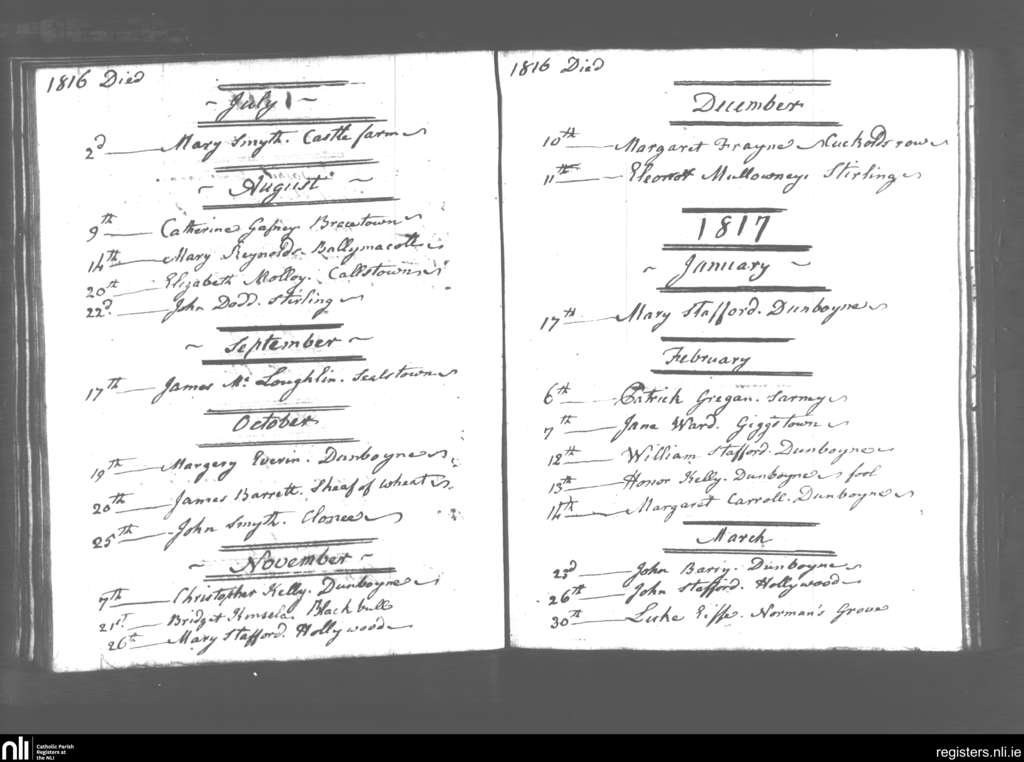 1816 Died
~ July 1 ~
2d Mary Smyth. Castle farm
~ August ~
9th Catherine Gafney Bracetown
14th Mary Reynolds. Ballymacoll
20th Elizabeth Molloy.
22d. John Dodd. Stirling
~ September ~
17th James Mc Loughlin.
October
19th Margery Everin. Dunboyne
20th James Barrett. Sheaf of wheat
25th John Smyth. Clonee
~ November ~
7th Christopher Kelly. Dunboyne
21st Bridget Kinsela. Black bull
26th Mary Stafford. Hollywood
1816 Died
December
10th Margaret Frayne Nuckolds row
11th Eleonor Mullowney. Stirling
1817
~ January ~
17th Mary Stafford. Dunboyne
February
6th Patrick Gregan. Sarney
7th Jane Ward. Giggstown
12th William Stafford. Dunboyne
13th Honor Kelly. Dunboyne fool
14th Margaret Carroll. Dunboyne
March
John Barry. Dunboyne
26th John Stafford. Hollywood
30th Luke Eiffe. Norman's Grove
nli Catholic Parish
Registers at
the NLI
registers.nli.ie